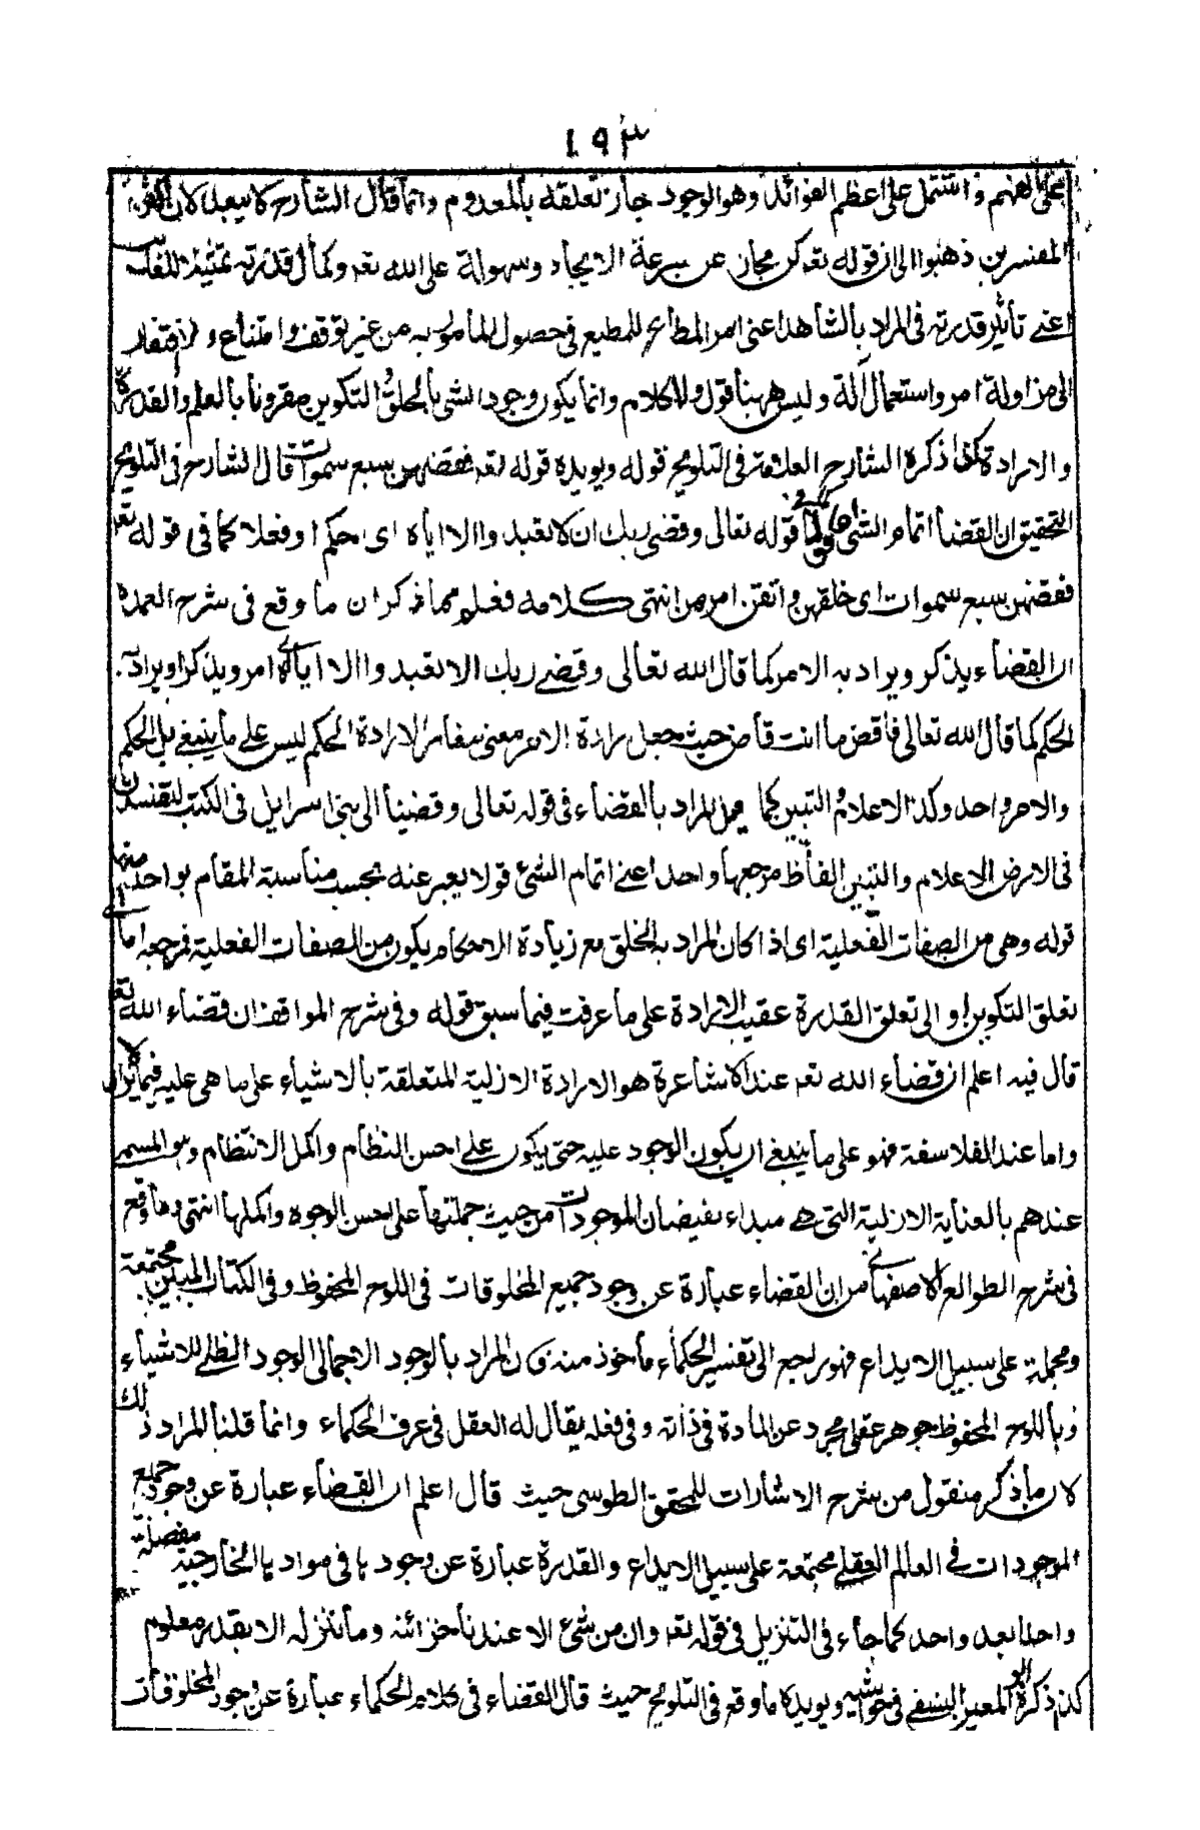 ١٩٣
على الفهم واشتمل على اعظم الفوائد وهو الوجود جاز تعلقه بالمعدوم وانما قال الشارح لا يبعد لان اكثر
المفسرين ذهبوا الى ان قوله تعه كن مجاز عن سرعة الايجاد وسهولة على الله تعه وكمال قدرته تمثيلا للغائب
اعنى تأثير قدرته فى المراد بالشاهد اعنى امر المطاع للمطيع فى حصول المأمور به من غير توقف وامتناع ولا افتقار
الى مزاولة امر واستعمال آلة وليس ههنا قول ولا كلام وانما يكون وجود الشئ بالخلق والتكوين مقرونا بالعلم والقدرة
والارادة كذا ذكره الشارح العلامة فى التلويح قوله ويويده قوله تعه فقضهن سبع سموات قال الشارح فى التلويح
التحقيق ان القضأ اتمام الشئ اما قولا كما فى قوله تعالى وقضى ربك ان لا تعبد واالا اياه اى حكم او فعلا كما فى قوله تعه
فقضهن سبع سموات اى خلقهن واتقن امرهن انتهى كلامه فعلم مما ذكر ان ما وقع فى شرح العمدة
ان القضاء يذكر ويراد به الامر كما قال الله تعالى وقضى ربك الا تعبد واالا اياه اى امر ويذكر ويراد به
الحكم كما قال الله تعالى فاقض ما انت قاض حيث جعل ارادة الامر معنى مغائر الارادة الحكم ليس على ما ينبغى بل الحكم
والامر واحد وكذا الاعلام والتبين كما يمل المراد بالقضاء فى قوله تعالى وقضينا الى بنى اسرايل فى الكتب لتفسدن
فى الارض الاعلام والتبين الفاظ مرجعها واحد اعنى اتمام الشئ قولا يعبر عنه بحسب مناسبة المقام بواحد منها
قوله وهى من الصفات الفعلية اى اذا كان المراد به الخلق مع زيادة الاحكام يكون من الصفات الفعلية فمرجعه اما الى
تعلق التكوين او الى تعلق القدرة عقيب الارادة على ما عرفت فيما سبق قوله وفى شرح المواقف ان قضاء الله تعه
قال فيه اعلم ان قضاء الله تعه عند الاشاعرة هو الارادة الازلية المتعلقة بالاشياء على ما هى عليه فيما لايزال
واما عند الفلاسفة فهو على ما ينبغى ان يكون الوجود عليه حتى يكون على احسن النظام واكمل الانتظام وهو المسمى
عندهم بالعناية الازلية التى هى مبداء لفيضان الموجودات من حيث جملتها على احسن الوجوه واكملها انتهى وما وقع
فى شرح الطوالع للاصفهانى من ان القضاء عبارة عن وجود جميع المخلوقات فى اللوح المحفوظ وفى الكتاب المبين مجتمعة
ومجملة على سبيل الابداع فهو راجع الى تفسير الحكماء ماخوذ منه فان المراد بالوجود الاجمالى الوجود الظلى للاشياء
وباللوح المحفوظ جوهر عقلى مجرد عن المادة فى ذاته وفى فعله يقال له العقل فى عرف الحكماء وانما قلنا المراد ذلك
لان ما ذكر منقول من شرح الاشارات للمحقق الطوسى حيث قال اعلم ان القضاء عبارة عن وجود جميع
الموجودات فى العالم العقلى مجتمعة على سبيل الابداع والقدرة عبارة عن وجودها فى موادها الخارجية مفصلة
واحدا بعد واحد كما جاء فى التنزيل فى قوله تعه وان من شئ الا عندنا خزائنه وما ننزله الا بقدر معلوم
كذا ذكره ابو المعين النسفى فى حواشيه ويويد كا ما وقع فى التلويح حيث قال القضاء فى كلام الحكماء عبارة عن وجود المخلوقات